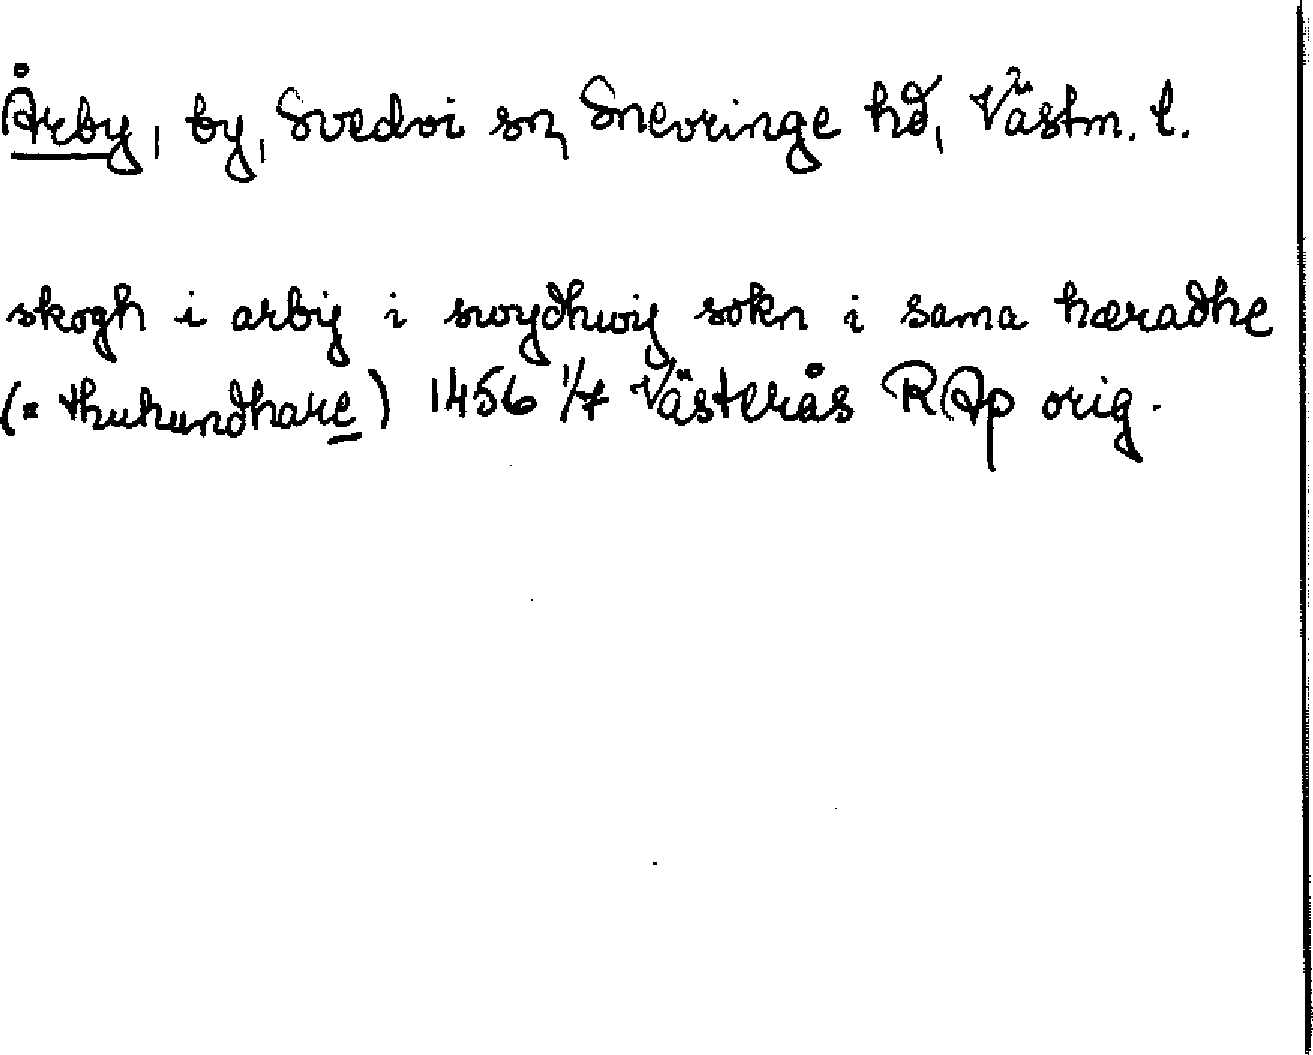 Årby, by, Svedvi sn, Snevringe hd, Västm. l.
skogh i arbÿ i swydhwÿ sokn i sama hæradhe
(= thuhundhare) 1456 1/7 Västerås RAp orig.